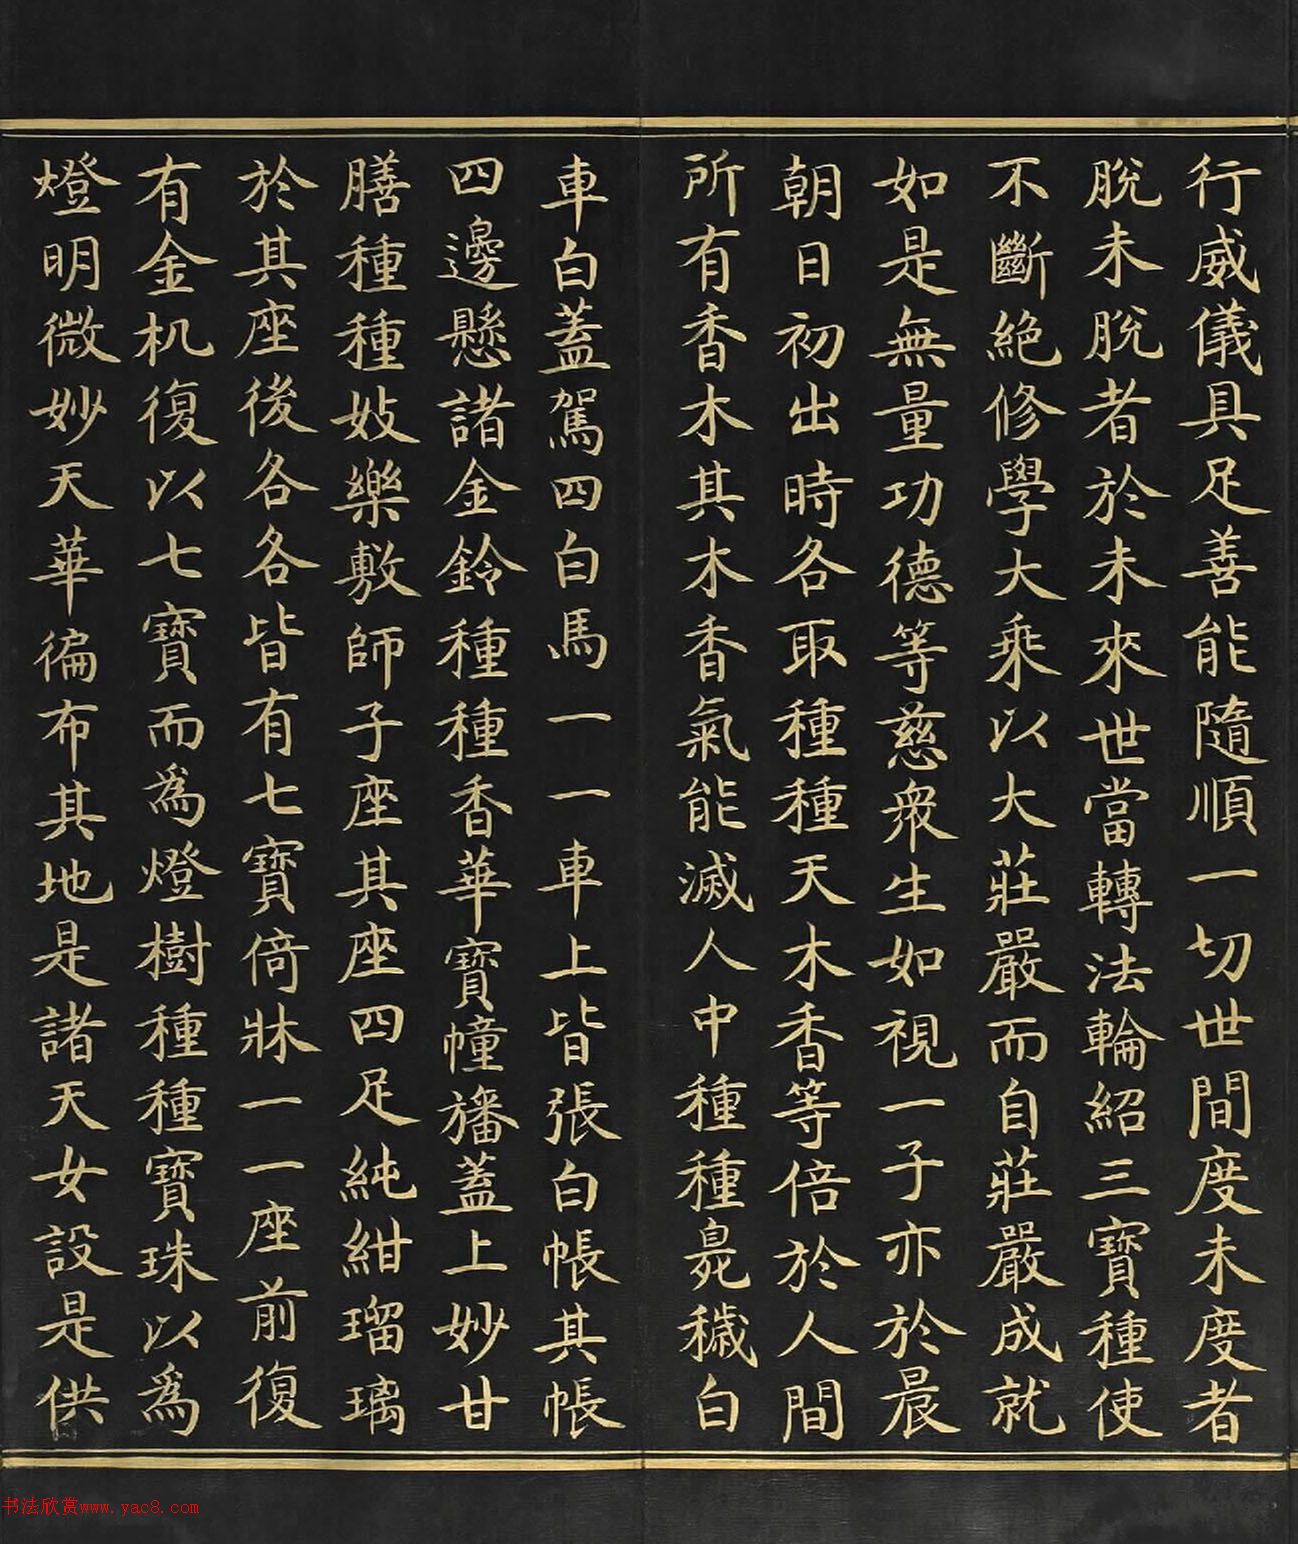 行威儀具足善能隨順一切世間度未度者
脫未脫者於未來世當轉法輪紹三寶種使
不斷絕修學大乘以大莊嚴而自莊嚴成就
如是無量功德等慈眾生如視一子亦於晨
朝日初出時各取種種天木香等倍於人間
所有香木其木香氣能滅人中種種臭穢白
車白蓋駕四白馬一一車上皆張白帳其帳
四邊懸諸金鈴種種香華寶幢旛蓋上妙甘
膳種種妓樂敷師子座其座四足純紺瑠璃
於其座後各各皆有七寶倚牀一一座前復
有金机復以七寶而為燈樹種種寶珠以為
燈明微妙天華徧布其地是諸天女設是供
书法欣赏www.yac8.com